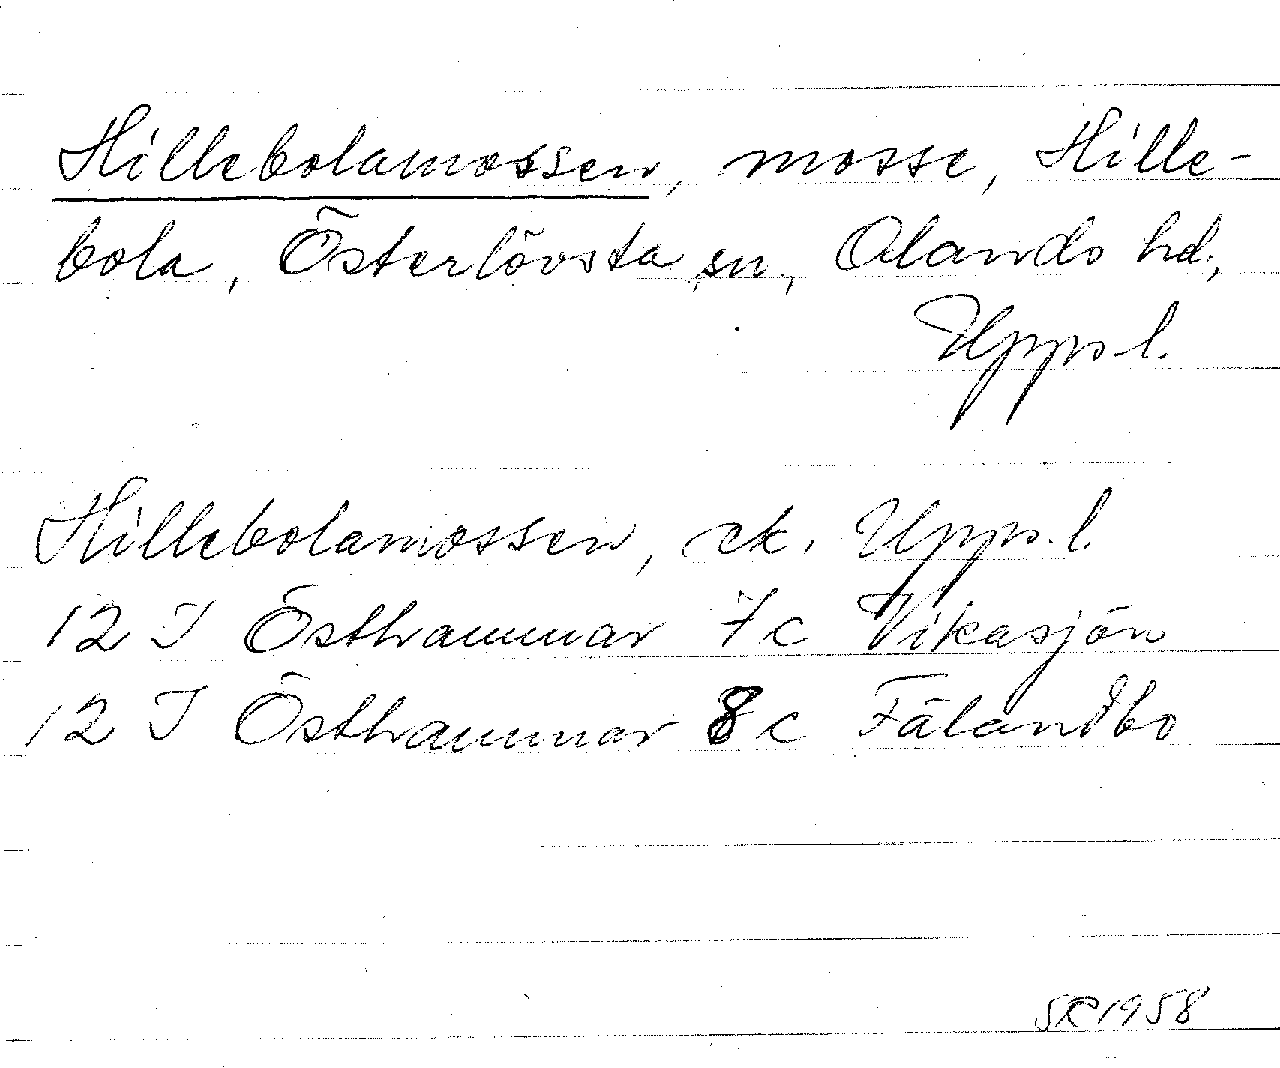 Hillebolamossen, mosse, Hille-
bola, Österlövsta sn, Olands hd.,
Upps.l.
Hillebolamossen, ek. Upps.l.
12 I Östhammar 7c Vikasjön
12 I Östhammar 8c Fälandbo
SR 1958